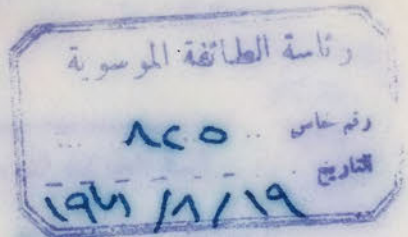 رئاسة الطائفة الموسوية
رقم خاص ٨٢٥
التاريخ ١٩٧١/٨/١٩